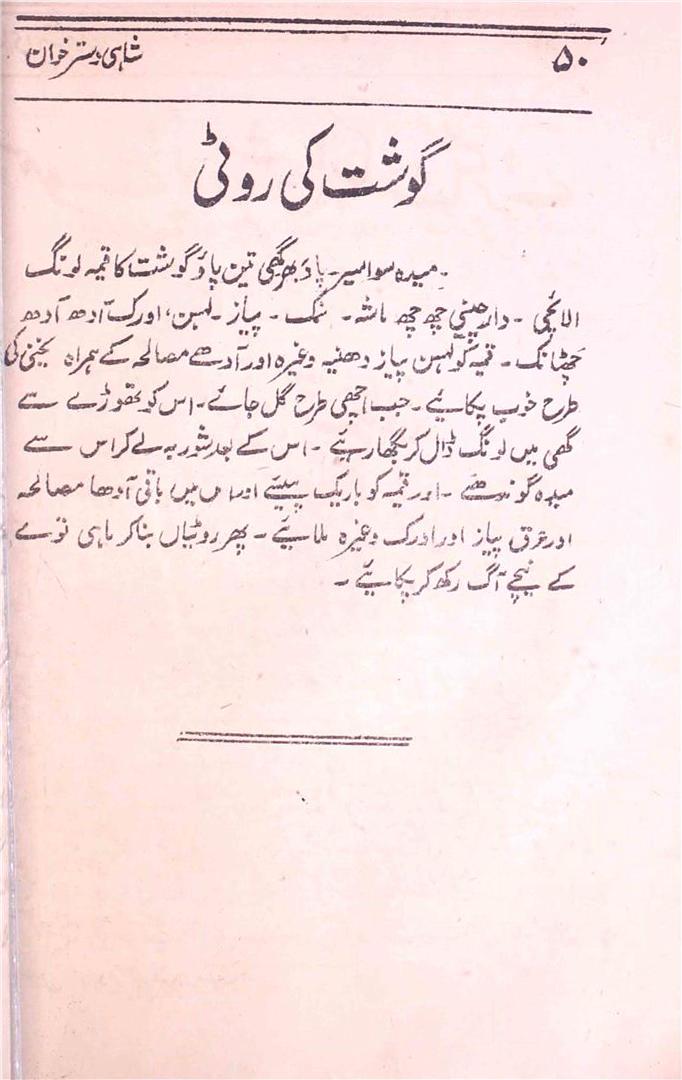 ۵۰ شاہی دسترخوان
گوشت کی روٹی
میدہ سوا سیر۔ پاؤ بھر گھی تین پاؤ گوشت کا قیمہ لونگ
الائچی ۔ دار چینی چھ چھ ماشہ ۔ نمک ۔ پیاز ۔ لہسن، ادرک آدھ آدھ
چھٹانک ۔ قیمہ کو لہسن پیاز دھنیہ وغیرہ اور آدھے مصالحہ کے ہمراہ یخنی کی
طرح خوب پکائیے ۔ جب اچھی طرح گل جائے ۔ اس کو تھوڑے سے
گھی میں لونگ ڈال کر بگھاریئے ۔ اس کے بعد شوربہ لے کر اس سے
میدہ گوندھے ۔ اور قیمہ کو باریک پیسئے اور اس میں باقی آدھا مصالحہ
اور عرق پیاز اور ادرک وغیرہ ملائیے ۔ پھر روٹیاں بنا کر ماہی توے
کے نیچے آگ رکھ کر پکائیے ۔